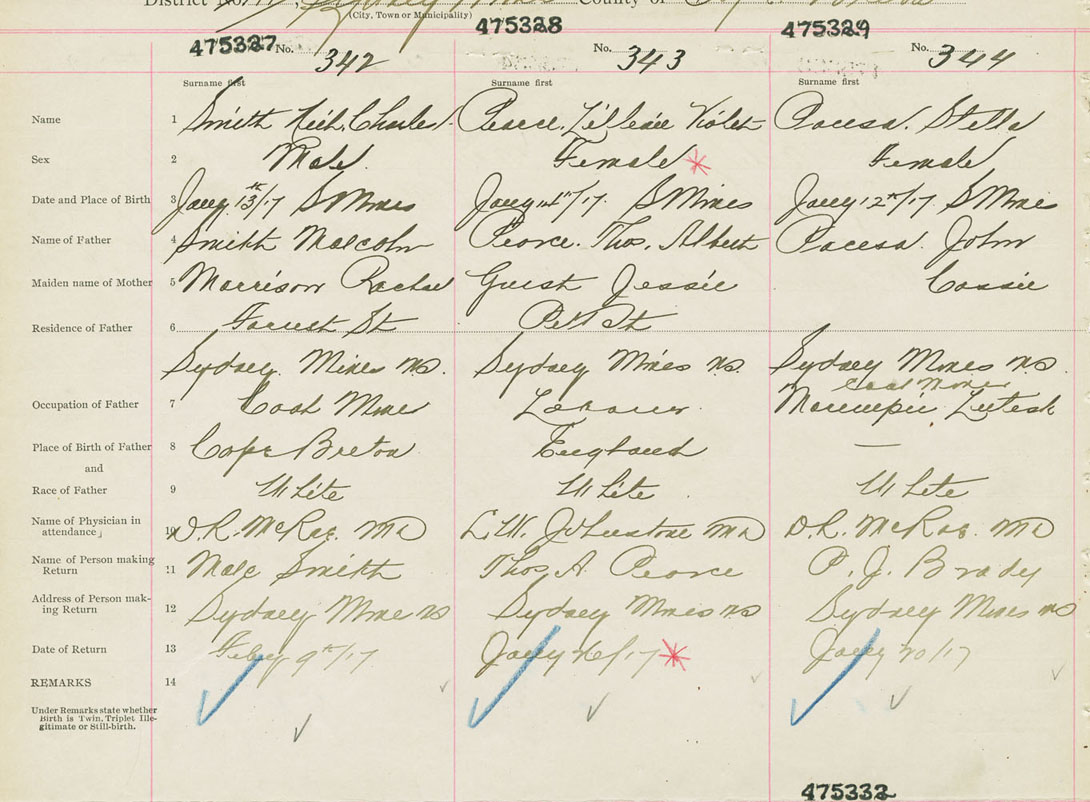 District No. Sydney Mines County of Cape Breton
(City, Town or Municipality)
475327 475328 475329
No. 342 No. 343 No. 344
Surname first Surname first Surname first
Name 1 Smith Charles Pearce. Lillian Violet Stella
Sex 2 Male. Female Female
Date and Place of Birth 3 Jany. 13th/17 S Mines Jany 14th/17. S Mines Jany 12th/17. S Mines
Name of Father 4 Smith Malcolm Pearce. Thos. Albert John
Maiden name of Mother 5 Morrison Rachael Guest Jessie Cassie
Residence of Father 6 Forrest St Pitt St
Sydney Mines NS. Sydney Mines NS. Sydney Mines NS.
Coal Miner
Occupation of Father 7 Coal Miner
Place of Birth of Father 8 Cape Breton England —
and
Race of Father 9 White White White
Name of Physician in 10 D.R. McRae. MD L.W. Johnstone MD D.R. McRae. MD
attendance
Name of Person making 11 Malc Smith Thos A. Pearce P. J. Brady
Return
Address of Person mak- 12 Sydney Mines NS Sydney Mines NS Sydney Mines NS
ing Return
Date of Return 13 Feby 9th/17 Jany 26/17 Jany 20/17
REMARKS 14
Under Remarks state whether
Birth is Twin, Triplet Ille-
gitimate or Still-birth.
475332